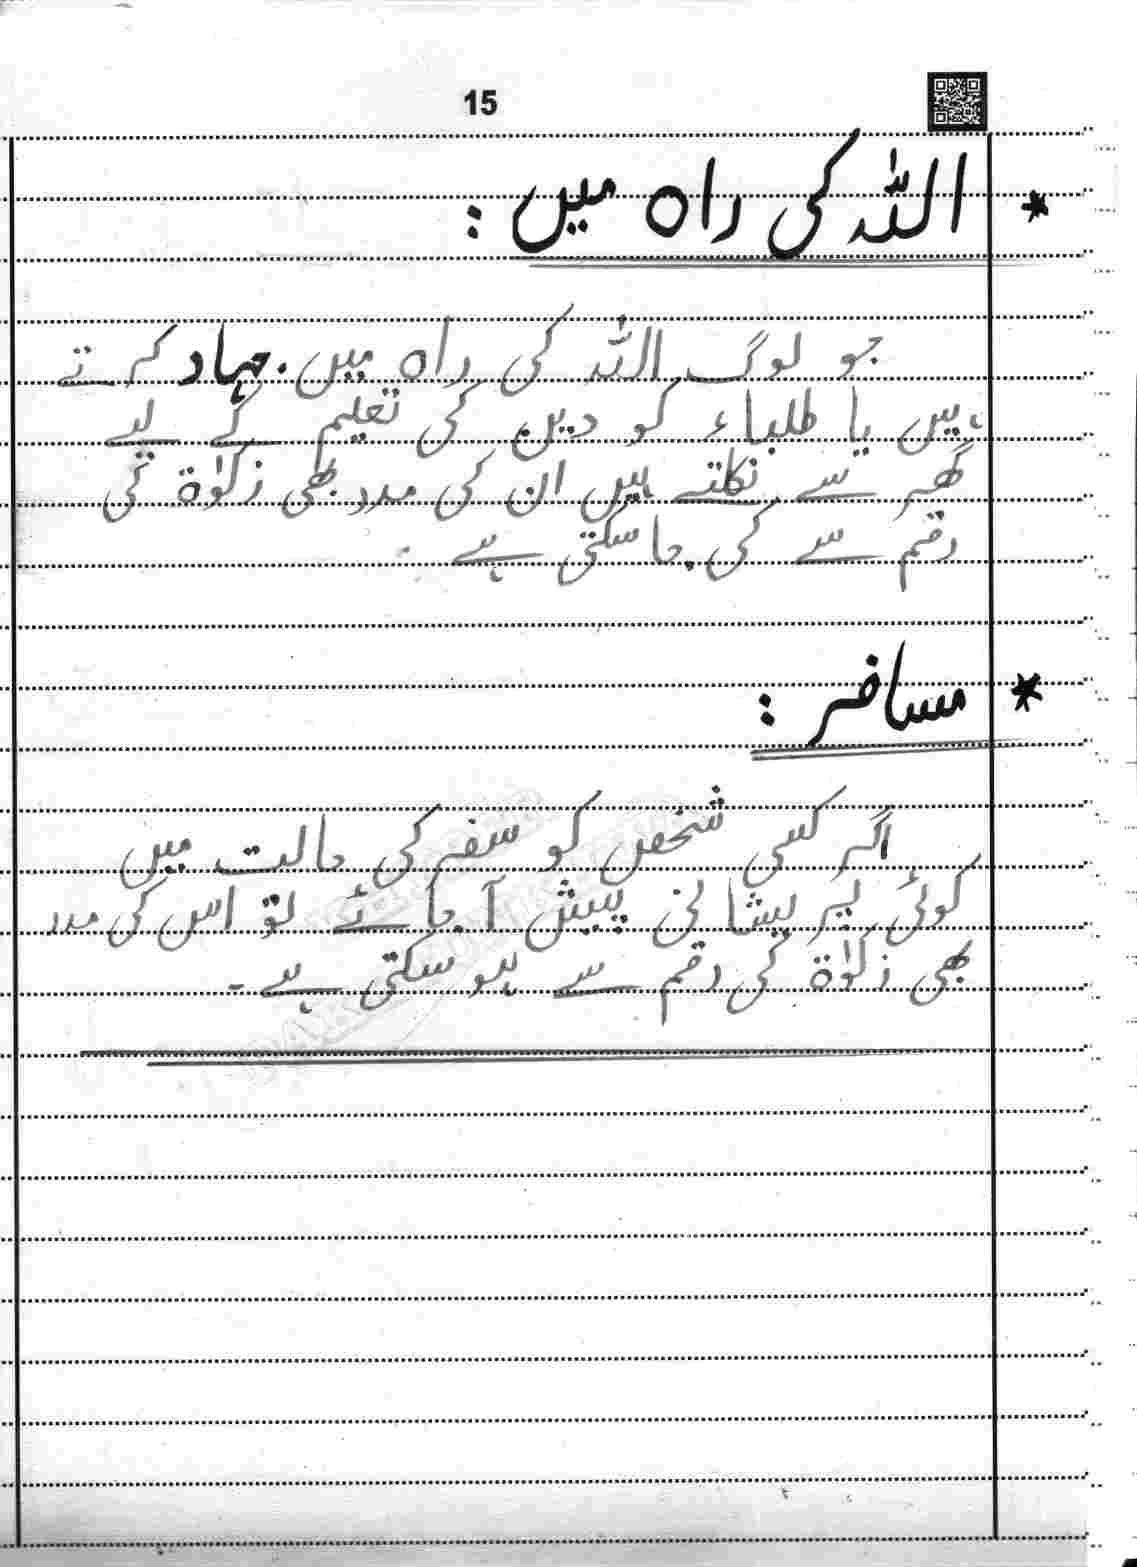 15
* اللہ کی راہ میں :
جو لوگ اللہ کی راہ میں جہاد کرتے
ہیں یا طلباء کو دین کی تعلیم کے لیے
گھر سے نکلتے ہیں ان کی مدد بھی زکوٰۃ کی
رقم سے کی جا سکتی ہے ۔
* مسافر :
اگر کسی شخص کو سفر کی حالت میں
کوئی پریشانی پیش آ جائے تو اس کی مدد
بھی زکوٰۃ کی رقم سے ہو سکتی ہے ۔